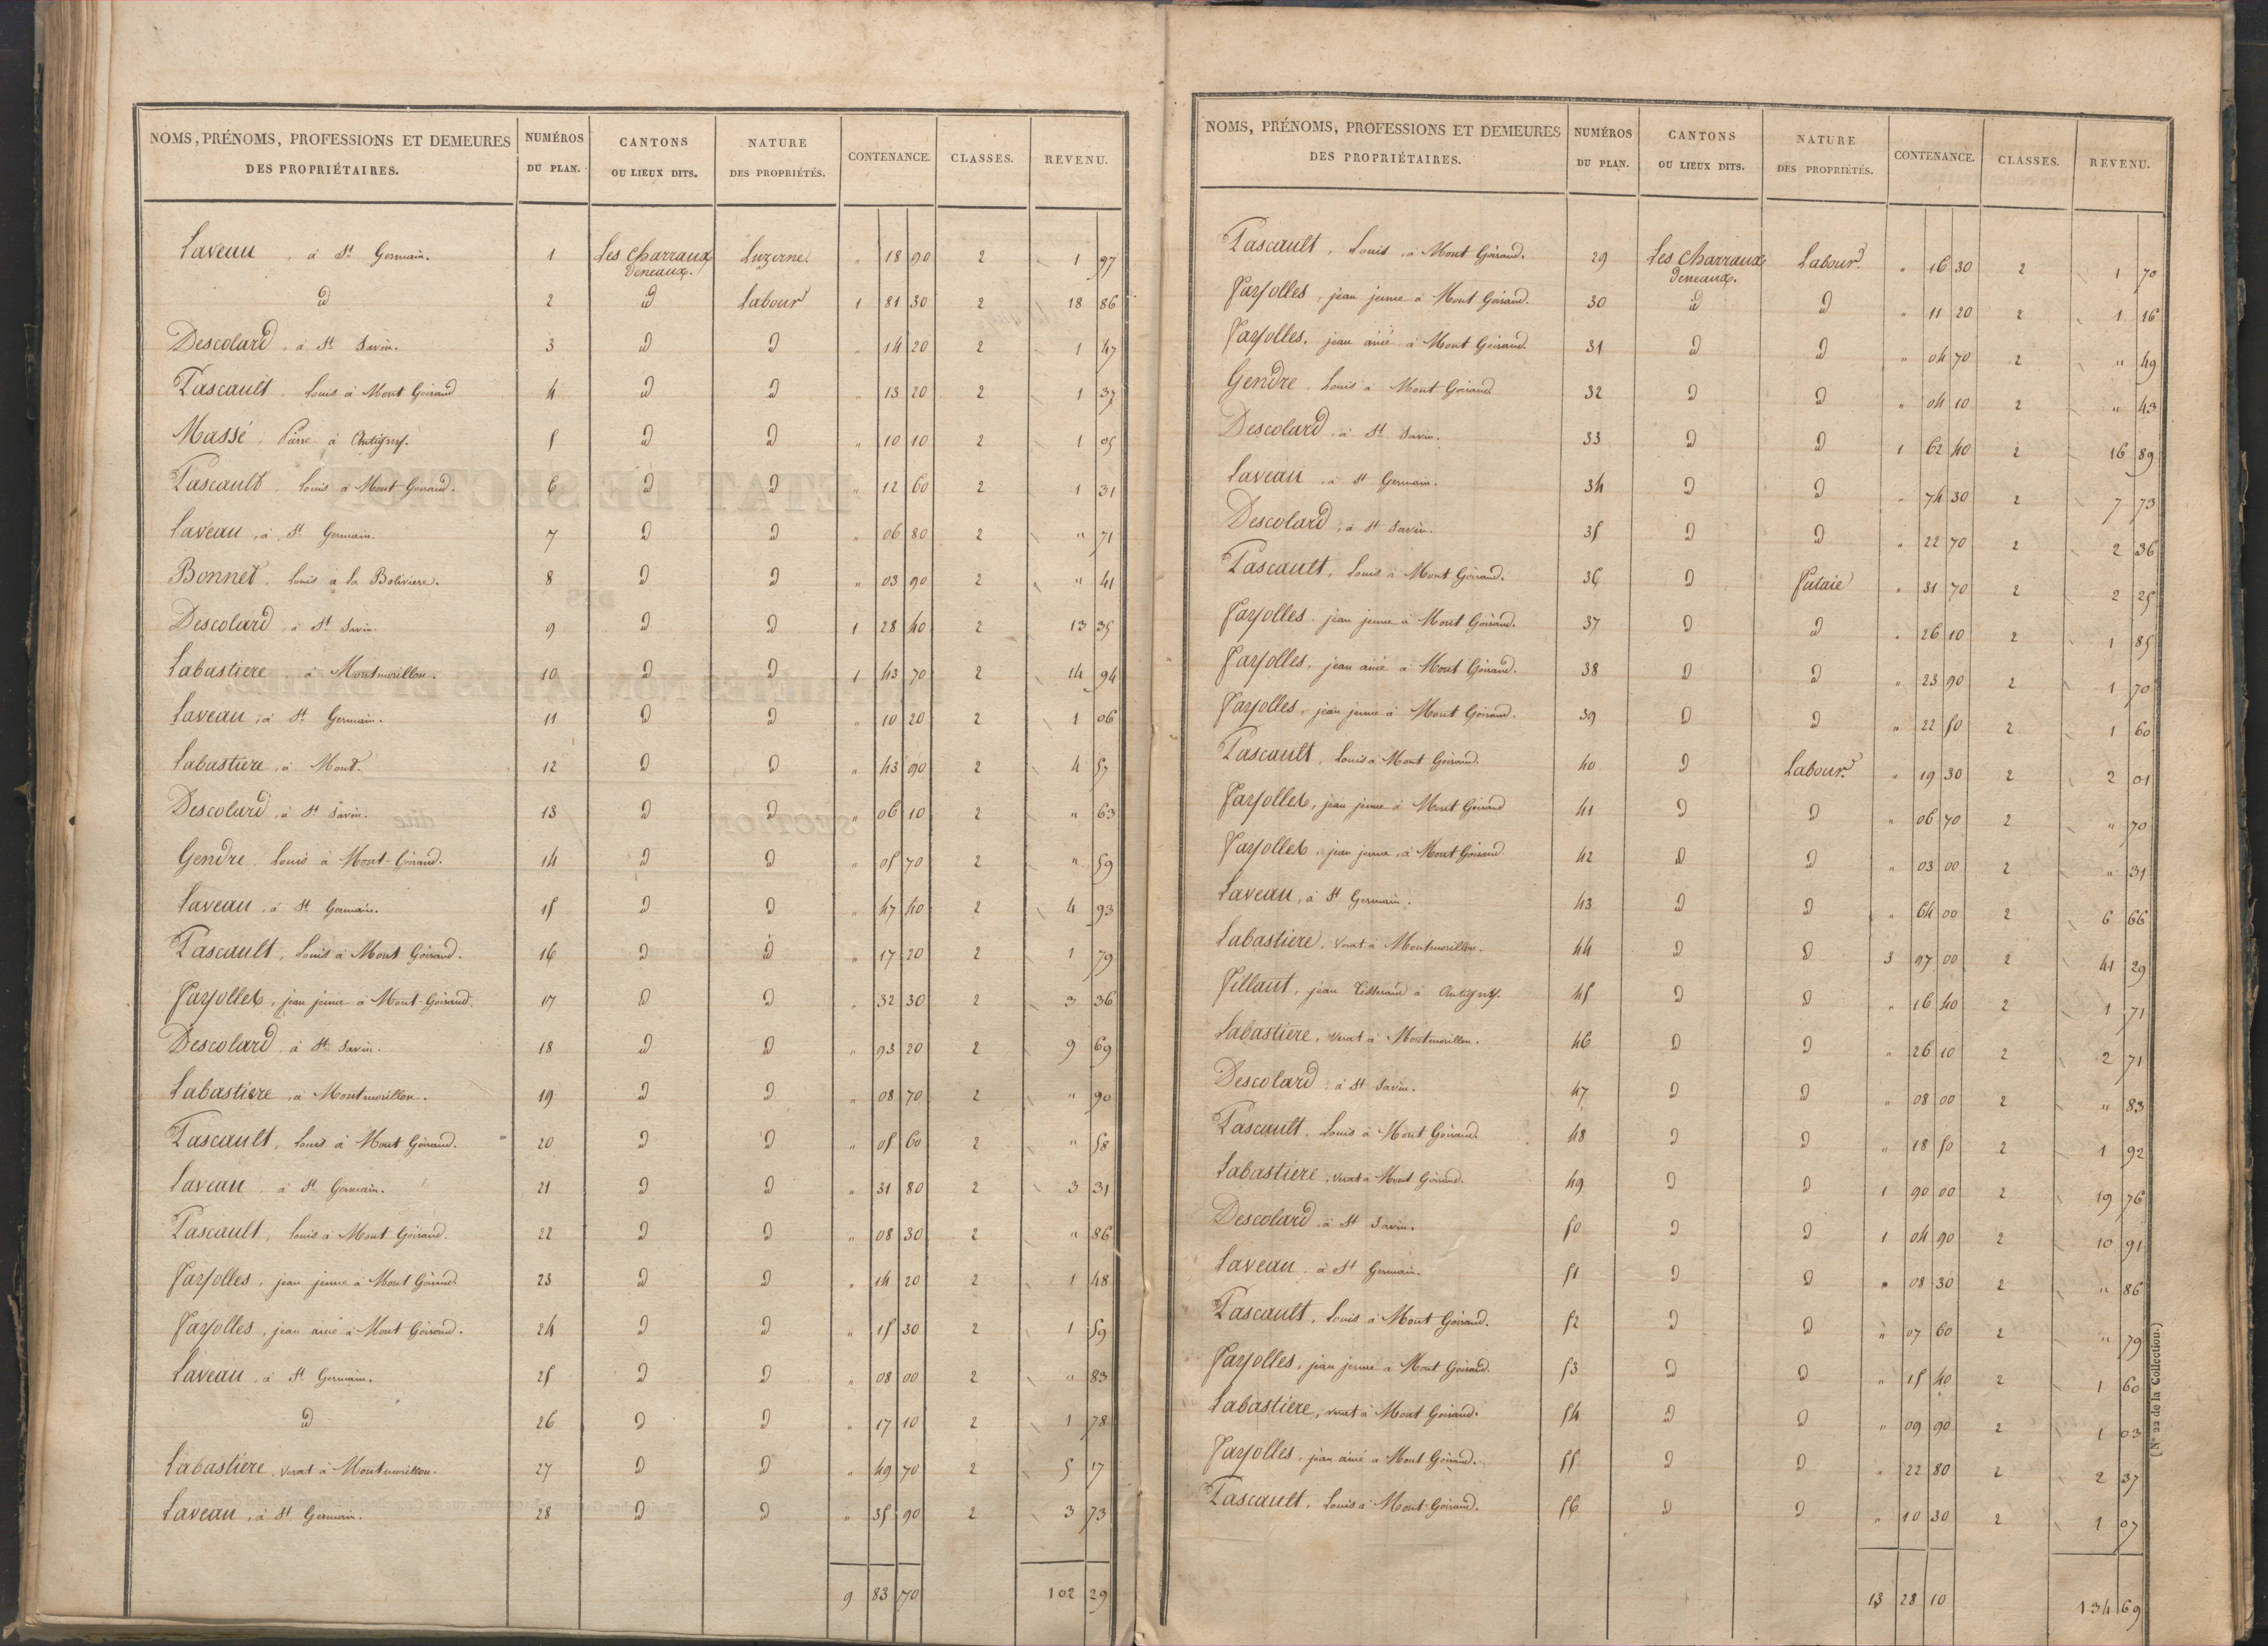 NOMS, PRÉNOMS, PROFESSIONS ET DEMEURES DES PROPRIÉTAIRES. NUMÉROS DU PLAN. CANTONS OU LIEUX DITS. NATURE DES PROPRIÉTÉS. CONTENANCE. CLASSES. REVENU.
Laveau, à St Germain. 1 Les Charraux Deneaux. Luzerne " 18 90 2 1 97
d 2 d Labour 1 81 30 2 18 86
Descolard, à St Savin. 3 d d " 14 20 2 1 47
Pascault, Louis à Mont Goirand 4 d d " 13 20 2 1 37
Massé, Pierre à Antigny. 5 d d " 10 10 2 1 05
Pascault, Louis à Mont-Goirand. 6 d d " 12 60 2 1 31
Laveau, à St Germain. 7 d d " 06 80 2 " 71
Bonnet, Louis à la Boliviere. 8 d d " 03 90 2 " 41
Descolard, à St Savin. 9 d d 1 28 40 2 13 35
Labastiere, à Montmorillon. 10 d d 1 43 70 2 14 94
Laveau, à St Germain. 11 d d " 10 20 2 1 06
Labastiere, à Mont. 12 d d " 43 90 2 4 57
Descolard, à St Savin. 13 d d " 06 10 2 " 63
Gendre, Louis à Mont-Goirand. 14 d d " 05 70 2 " 59
Laveau, à St Germain. 15 d d " 47 40 2 4 93
Pascault, Louis à Mont Goirand. 16 d d " 17 20 2 1 79
Fayolles, jean jeune à Mont-Goirand. 17 d d " 32 30 2 3 36
Descolard, à St Savin. 18 d d " 93 20 2 9 69
Labastiere, à Montmorillon. 19 d d " 08 70 2 " 90
Pascault, Louis à Mont Goirand. 20 d d " 05 60 2 " 58
Laveau, à St Germain. 21 d d " 31 80 2 3 31
Pascault, Louis à Mont Goirand. 22 d d " 08 30 2 " 86
Fayolles, jean jeune à Mont Goirand. 23 d d " 14 20 2 1 48
Fayolles, jean ainé à Mont Goirand. 24 d d " 15 30 2 1 59
Laveau, à St Germain. 25 d d " 08 00 2 " 83
d 26 d d " 17 10 2 1 78
Labastiere, Verat à Montmorillon. 27 d d " 49 70 2 5 17
Laveau, à St Germain. 28 d d " 35 90 2 3 73
9 83 70 102 29
NOMS, PRÉNOMS, PROFESSIONS ET DEMEURES DES PROPRIÉTAIRES. NUMÉROS DU PLAN. CANTONS OU LIEUX DITS. NATURE DES PROPRIÉTÉS. CONTENANCE. CLASSES. REVENU.
Pascault, Louis, à Mont Goirand. 29 Les Charraux Deneaux. Labour " 16 30 2 1 70
Fayolles, jean jeune à Mont Goirand. 30 d d " 11 20 2 1 16
Fayolles, jean ainé à Mont Goirand. 31 d d " 04 70 2 " 49
Gendre, Louis à Mont-Goirand 32 d d " 04 10 2 " 43
Descolard, à St Savin. 33 d d 1 62 40 2 16 89
Laveau, à St Germain. 34 d d " 74 30 2 7 73
Descolard, à St Savin. 35 d d " 22 70 2 2 36
Pascault, Louis à Mont Goirand. 36 d Futaie " 31 70 2 2 25
Fayolles, jean jeune à Mont Goirand. 37 d d " 26 10 2 1 85
Fayolles, jean ainé à Mont Goirand. 38 d d " 23 90 2 1 70
Fayolles, jean jeune à Mont Goirand. 39 d d " 22 50 2 1 60
Pascault, Louis à Mont Goirand. 40 d Labour " 19 30 2 2 01
Fayolles, jean jeune à Mont Goirand 41 d d " 06 70 2 " 70
Fayolles, jean jeune, à Mont Goirand 42 d d " 03 00 2 " 31
Laveau, à St Germain. 43 d d " 64 00 2 6 66
Labastiere, Verat à Montmorillon. 44 d d 3 97 00 2 41 29
Fillaut, jean Tisserand à Antigny. 45 d d " 16 40 2 1 71
Labastiere, Verat à Montmorillon. 46 d d " 26 10 2 2 71
Descolard, à St Savin. 47 d d " 08 00 2 " 83
Pascault, Louis à Mont Goirand. 48 d d " 18 50 2 1 92
Labastiere, Verat à Mont Goirand. 49 d d 1 90 00 2 19 76
Descolard, à St Savin. 50 d d 1 04 90 2 10 91
Laveau, à St Germain. 51 d d " 08 30 2 " 86
Pascault, Louis à Mont Goirand. 52 d d " 07 60 2 " 79
Fayolles, jean jeune à Mont Goirand. 53 d d " 15 40 2 1 60
Labastiere, Verat à Mont Goirand. 54 d d " 09 90 2 1 03
Fayolles, jean ainé à Mont Goirand. 55 d d " 22 80 2 2 37
Pascault, Louis à Mont-Goirand. 56 d d " 10 30 2 1 07
13 28 10 134 69
(N° 22 de la Collection.)